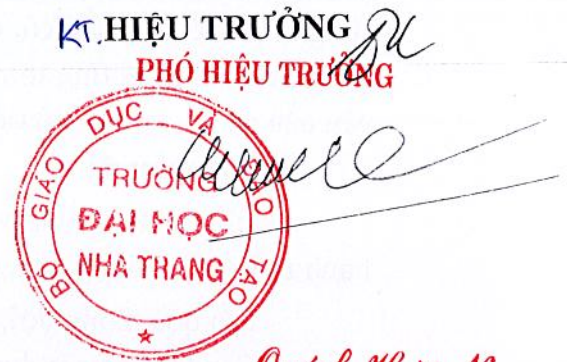 KT. HIỆU TRƯỞNG
PHÓ HIỆU TRƯỞNG
BỘ GIÁO DỤC VÀ ĐÀO TẠO
TRƯỜNG
ĐẠI HỌC
NHA THANG